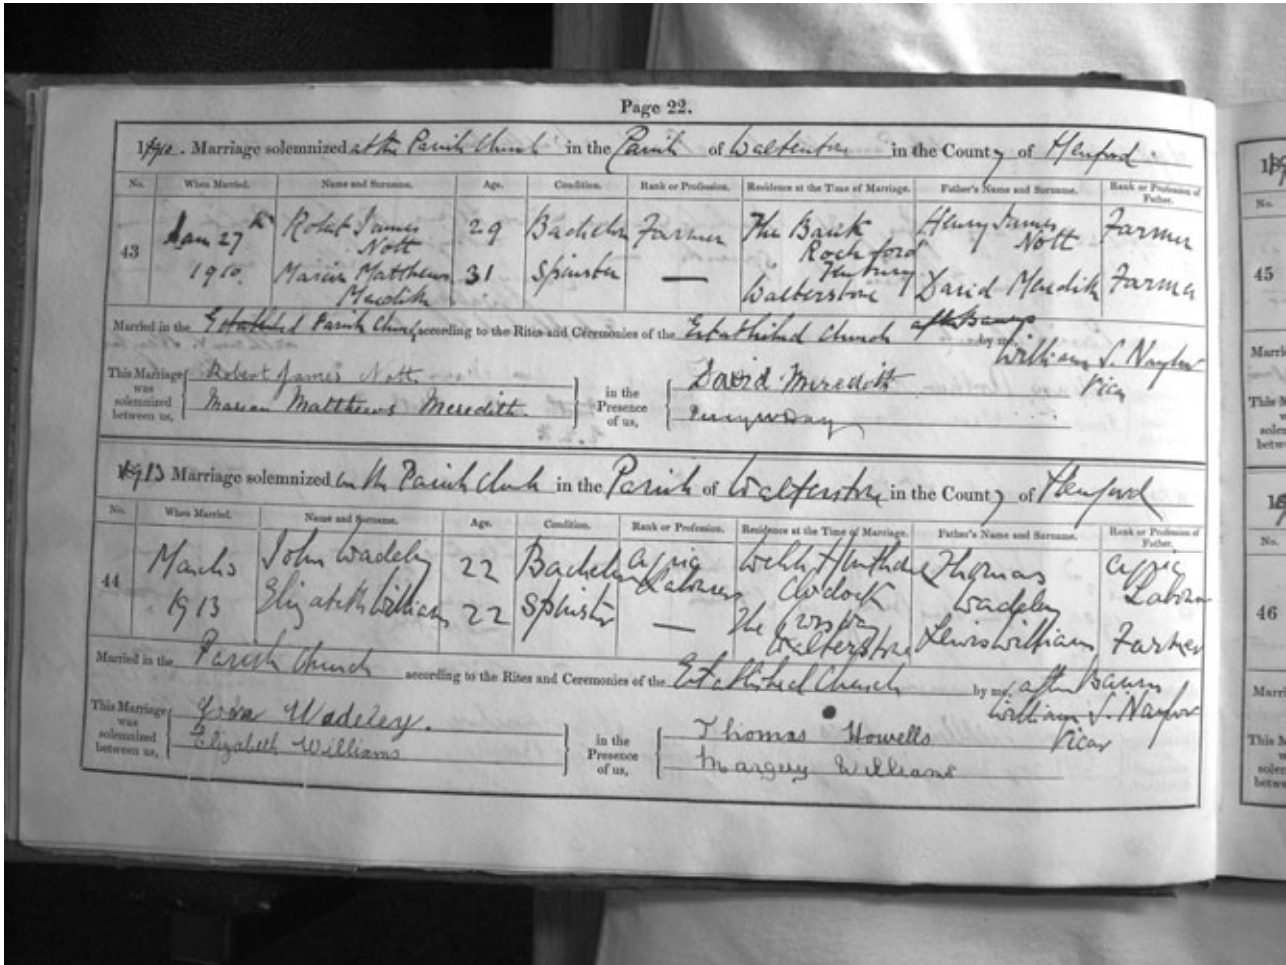 Page 22.
1910. Marriage solemnized at the Parish Church in the Parish of Walterstone in the County of Hereford
No. When Married. Name and Surname. Age. Condition. Rank or Profession. Residence at the Time of Marriage. Father's Name and Surname. Rank or Profession of Father.
43 Jan 27th 1910. Robert James Nott 29 Bachelor Farmer The Bank Rochford Tenbury Henry James Nott Farmer
Marian Matthews Meredith 31 Spinster — Walterstone David Meredith Farmer
Married in the Parish Church according to the Rites and Ceremonies of the Established Church after Banns by me,
William S. Naylor
Vicar
This Marriage was solemnized between us, Robert James Nott in the Presence of us, David Meredith
Marian Matthews Meredith.
1913 Marriage solemnized in the Parish Church in the Parish of Walterstone in the County of Hereford
No. When Married. Name and Surname. Age. Condition. Rank or Profession. Residence at the Time of Marriage. Father's Name and Surname. Rank or Profession of Father.
44 1913 John Wadeley 22 Bachelor Agric Labourer Clodock Thomas Wadeley Agric Labourer
Elizabeth Williams 22 Spinster — The Walterstone Lewis William Farmer
Married in the Parish Church according to the Rites and Ceremonies of the Established Church by me, after Banns
William S. Naylor
Vicar
This Marriage was solemnized between us, John Wadeley. in the Presence of us, Thomas Howells
Elizabeth Williams Margery Williams
No.
45
No.
46